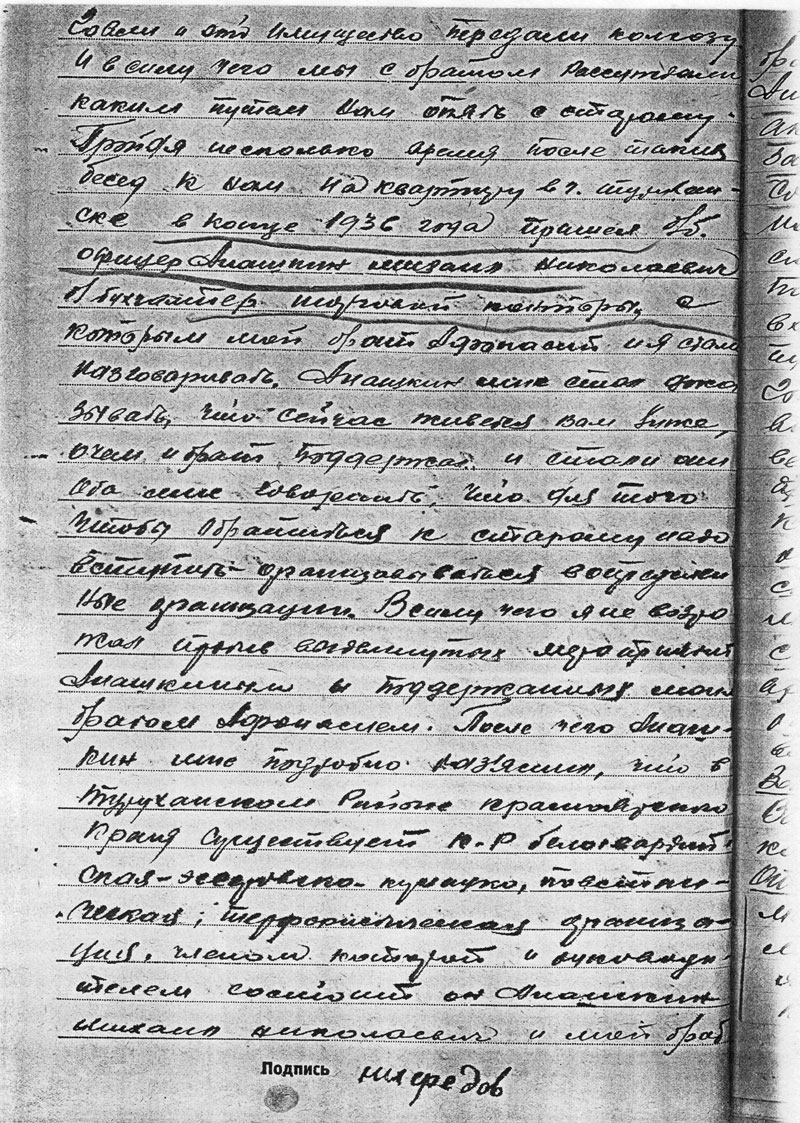 Совли и это имущество передали колхозу
И в силу чего мы с братом Рассуждали
каким путем нам опять с старому.
Пройдя несколько время после таких
бесед к нам на квартиру в г. турухан-
ске в конце 1936 года пришел быв.
офицер Анашкин михаил николаевич
бухгалтер конторы, с
которым мой брат Афонасий и я стали
разговаривать, Анашкин мне стал дока
зывать, что сейчас живется вам хуже,
о чем и брат поддержал и стали они
оба мне говорить, что для того
чтобы обратиться к старому надо
вступить организовываться в
ные организации. В силу чего я не возро
жал против выдвинутых мероприятий
Анашкиным и поддержанных моим
братом Афонасием. После чего Анаш-
кин мне подробно разяснил, что в
туруханском Районе красноярского
края существует к-р белогвардей
ская-эсеровско-кулацко, повстан-
ческая, террористическая организа-
ция, членом которой и руковод-
ителем состоит он Анашкин
михаил николаевич и мой брат
Подпись